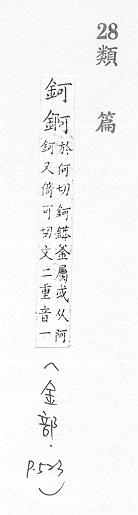 28
類篇
鈳𨫒
於何切鈳䥈釜屬或从阿
鈳又倚可切文二重音一
（金部．
P.523）